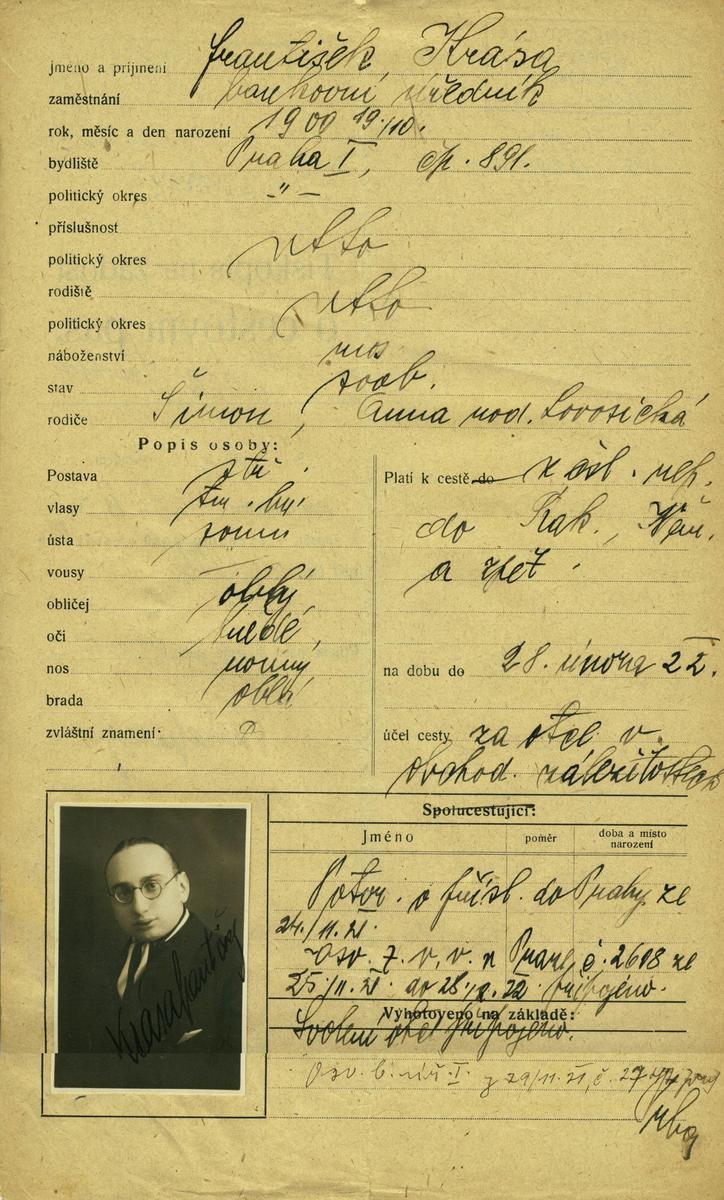 Jméno a příjmení František Krása
zaměstnání bankovní úředník
rok, měsíc a den narození 1900 19./10.
bydliště Praha I, čp. 891.
politický okres –„–
příslušnost
politický okres
rodiště
politický okres
náboženství mos
stav svob.
rodiče Šimon, Anna rod. Lovosická
Popis osoby:
Postava stř.
vlasy
ústa soum
vousy —
obličej oblý
oči hnědé,
nos
brada oblá
zvláštní znamení
Platí k cestě do
do Rak., Něm.
a zpět.
na dobu do 28. února 22.
účel cesty za otce v
obchod. záležitostech
Spolucestující:
Jméno
poměr
doba a místo narození
Potvr. o přísl. do Prahy ze
24./11. 21.
Osv. z. v. v. Praze č. 2608 ze
25./11. 21. do 28./2. 22. připojeno.
Vyhotoveno na základě:
Svolení otce připojeno.
Osv. b. 29/11. 21, č.
Krasa František